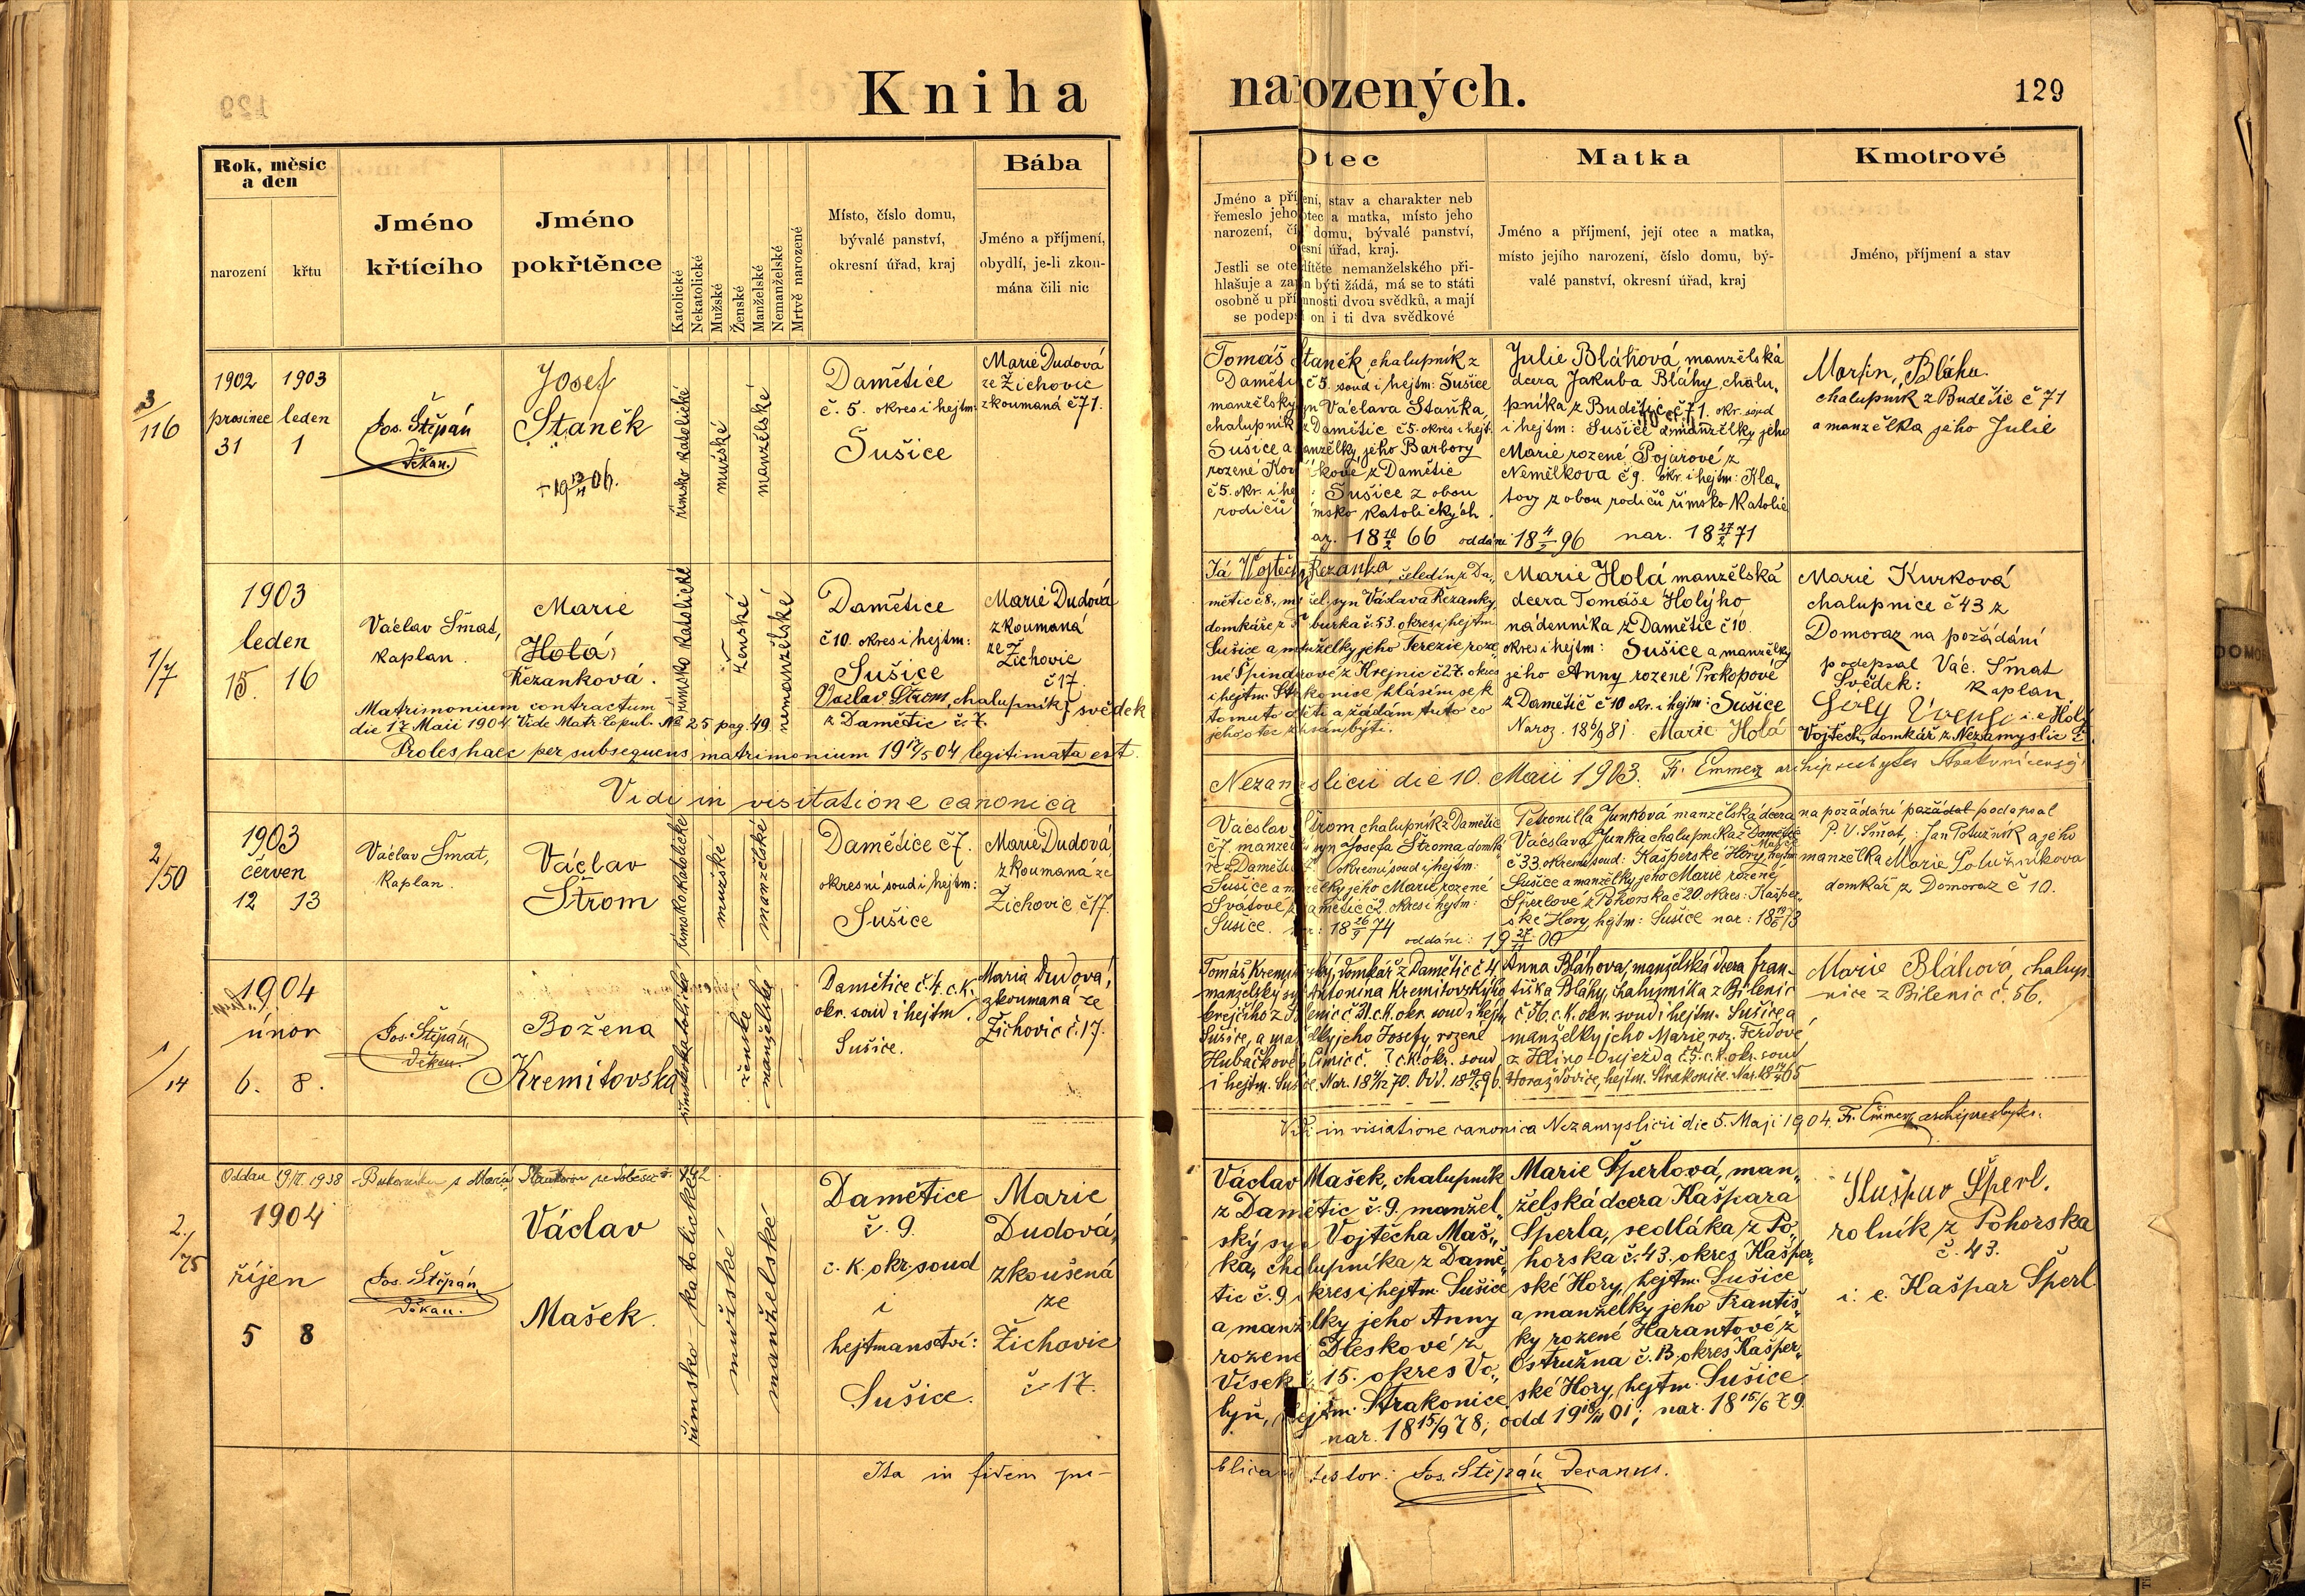 Kniha narozených.
129
Rok, měsíc
a den
narození
křtu
Jméno
křtícího
Jméno
pokřtěnce
Katolické
Nekatolické
Mužské
Ženské
Manželské
Nemanželské
Mrtvě narozené
Místo, číslo domu,
bývalé panství,
okresní úřad, kraj
Bába
Jméno a příjmení,
obydlí, je-li zkou-
mána čili nic
Otec
Jméno a příjmení, stav a charakter neb
řemeslo jeho, otec a matka, místo jeho
narození, číslo domu, bývalé panství,
okresní úřad, kraj.
Jestli se otec dítěte nemanželského při-
hlašuje a zapsán býti žádá, má se to státi
osobně u přítomnosti dvou svědků, a mají
se podepsi on i ti dva svědkové
Matka
Jméno a příjmení, její otec a matka,
místo jejího narození, číslo domu, bý-
valé panství, okresní úřad, kraj
Kmotrové
Jméno, příjmení a stav
3/116
1902 1903
prosinec leden
31 1
Jos. Štěpán
děkan.
Josef
Staněk
římsko katolické
mužské
manželské
Damětice
č. 5. okres i hejtm:
Sušice
Marie Dudová
ze Žichovic
zkoumaná č 71.
Tomáš Staněk, chalupník z
Damětic č 5 soud i hejtm: Sušice
manželský syn Václava Staňka,
chalupníka z Damětic č 5. okres i hejt:
Sušice a manželky jeho Barbory
rozené z Damětic
č 5. okr. i hejt: Sušice z obou
rodičů římsko katolických.
18 66 oddáni 18 96
Julie Bláhová, manželská
dcera Jakuba Bláhy, chalu„
pníka z Budětic č 71. okr. soud
i hejtm: Sušice a manželky jeho
Marie rozené Pojarové z
Nemělkova č 9. okr. i hejtm: Kla„
tovy z obou rodičů římsko katolic
nar. 18 27/2 71
Martin Bláha
chalupník z Budětic č 71
a manželka jeho Julie
1/7
1903
leden
15. 16
Václav Šmat,
kaplan.
Marie
Holá
Řezanková.
římsko katolické
ženské
nemanželské
Damětice
č 10. okres i hejtm:
Sušice
Marie Dudová
zkoumaná
ze
Žichovic
č 17.
Václav Štrom, chalupník } svědek
z Damětic č. 7.
Matrimonium contractum
die 17 Maii 1904. Vide Matr. Copul. No 25 pag. 49
Proles haec per subsequens matrimonium 19 17/5 04 legitimata est.
Já Vojtěch Řezanka, čeledín z Da„
mětic č 8., manžel. syn Václava Řezanky,
domkáře z burka č. 53. okres i hejtm
Sušice a manželky jeho Terezie roze„
né Špindrové z Krejnic č 27. okres
i hejtm. Strakonice hlásím se k
tomuto dítěti a žádám tuto co
jeho otec zapsán býti.
Marie Holá manželská
dcera Tomáše Holýho
nádenníka z Damětic č 10
okres i hejtm: Sušice a manželky
jeho Anny rozené Prokopové
z Damětic č 10 okr. i hejtm: Sušice
Naroz. 18 6/9 81. Marie Holá
Marie Kurková
chalupnice č 43 z
Domoraz na požádání
podepsal Vác. Šmat
Svědek: kaplan
i. e. Holý
Vojtěch, domkář z Nezamyslic
Vidi in visitatione canonica
Nezamyslicii die 10. Maii 1903. Fr. Emmer archipresbyter
2/50
1903
červen
12 13
Václav Šmat,
kaplan.
Václav
Štrom
římsko katolické
mužské
manželské
Damětice č 7.
okresní soud i hejtm:
Sušice
Marie Dudová,
zkoumaná ze
Žichovic č 17.
Václav Štrom chalupník z Damětic
č 7. manželský syn Josefa Štroma domká
ře z Damětic okresní soud i hejtm:
Sušice a manželky jeho Marie rozené
Svatové z Damětic č 2. okres i hejtm:
Sušice. nar: 18 26/9 74
oddáni: 19 27/11 00
Petronilla Junková manželská dcera
Václava Junka chalupníka z Damětic
č 33. okresní soud: Kašperské Hory, hejtm
Sušice a manželky jeho Marie rozené
Šperlové z Pohorska č 20 okres: Kašper„
ské Hory, hejtm: Sušice nar: 18 73
na požádání požádal podepsal
P. V. Šmat, : Jan Potužník a jeho
manželka Marie Potužníkova
domkář z Domoraz č 10.
1/14
1904
únor
6. 8.
Jos. Štěpán
děkan.
Božena
Kremitovská
římskokatolické
ženské
manželské
Damětice č. 4. c. k.
okr. soud i hejtm.
Sušice.
Maria Dudová,
zkoumaná ze
Žichovic č. 17.
Tomáš Kremitovský, domkář z Damětic č 4
manželský syn Antonína Kremitovskýho
krejčího z Bilenic č 31. c.k. okr. soud i hejtm.
Sušice, a manželky jeho Josefy, rozené
Hubáčkové z Čimic č. 7 c.k. okr. soud
i hejtm. Sušice. Nar. 18 70. Odd. 18 96.
Anna Bláhova, manželská dcera Fran-
tiška Bláhy, chalupníka z Bilenic
č 56. c. k. okr. soud i hejtm. Sušice a
manželky jeho Marie, roz. Ferdové
z Hlino-Oujezda č. 5. c. k. okr. soud
Horažďovice, hejtm. Strakonice. Nar. 18 65
Marie Bláhová, chalup„
nice z Bilenic č. 56.
Vidi in visiatione canonica Nezamyslicii die 5. Maji 1904. Fr. Emmer archipresbyter.
2./75
Oddán 19/II. 1938
1904
říjen
5 8
Jos. Štěpán
děkan.
Václav
Mašek.
římsko-katolické
mužské
manželské
Damětice
č. 9.
c. k. okr. soud
i
hejtmanství:
Sušice.
Marie
Dudová,
zkoušená
ze
Žichovic
č 17.
Václav Mašek, chalupník
z Damětic č. 9. manžel„
ský syn Vojtěcha Maš„
ka, chalupníka z Damě„
tic č. 9 okres i hejtm. Sušice
a manželky jeho Anny
rozené Dleskové z
Vísek č. 15. okres Vo„
lyň, hejtm. Strakonice
nar. 18 15/9 78; odd 19 18/11 01; nar. 18 15/6 79.
Marie Šperlová, man„
želská dcera Kašpara
Šperla, sedláka z Po„
horska č. 43. okres Kašper„
ské Hory, hejtm. Sušice
a manželky jeho Františ„
ky rozené Harantové z
Ostružna č. 13, okres Kašper„
ské Hory, hejtm. Sušice.
Kašpar Šperl.
rolník z Pohorska
č. 43.
i. e. Kašpar Šperl
Ita in fidem pu-
blicam testor: Jos. Štěpán, Decanus.